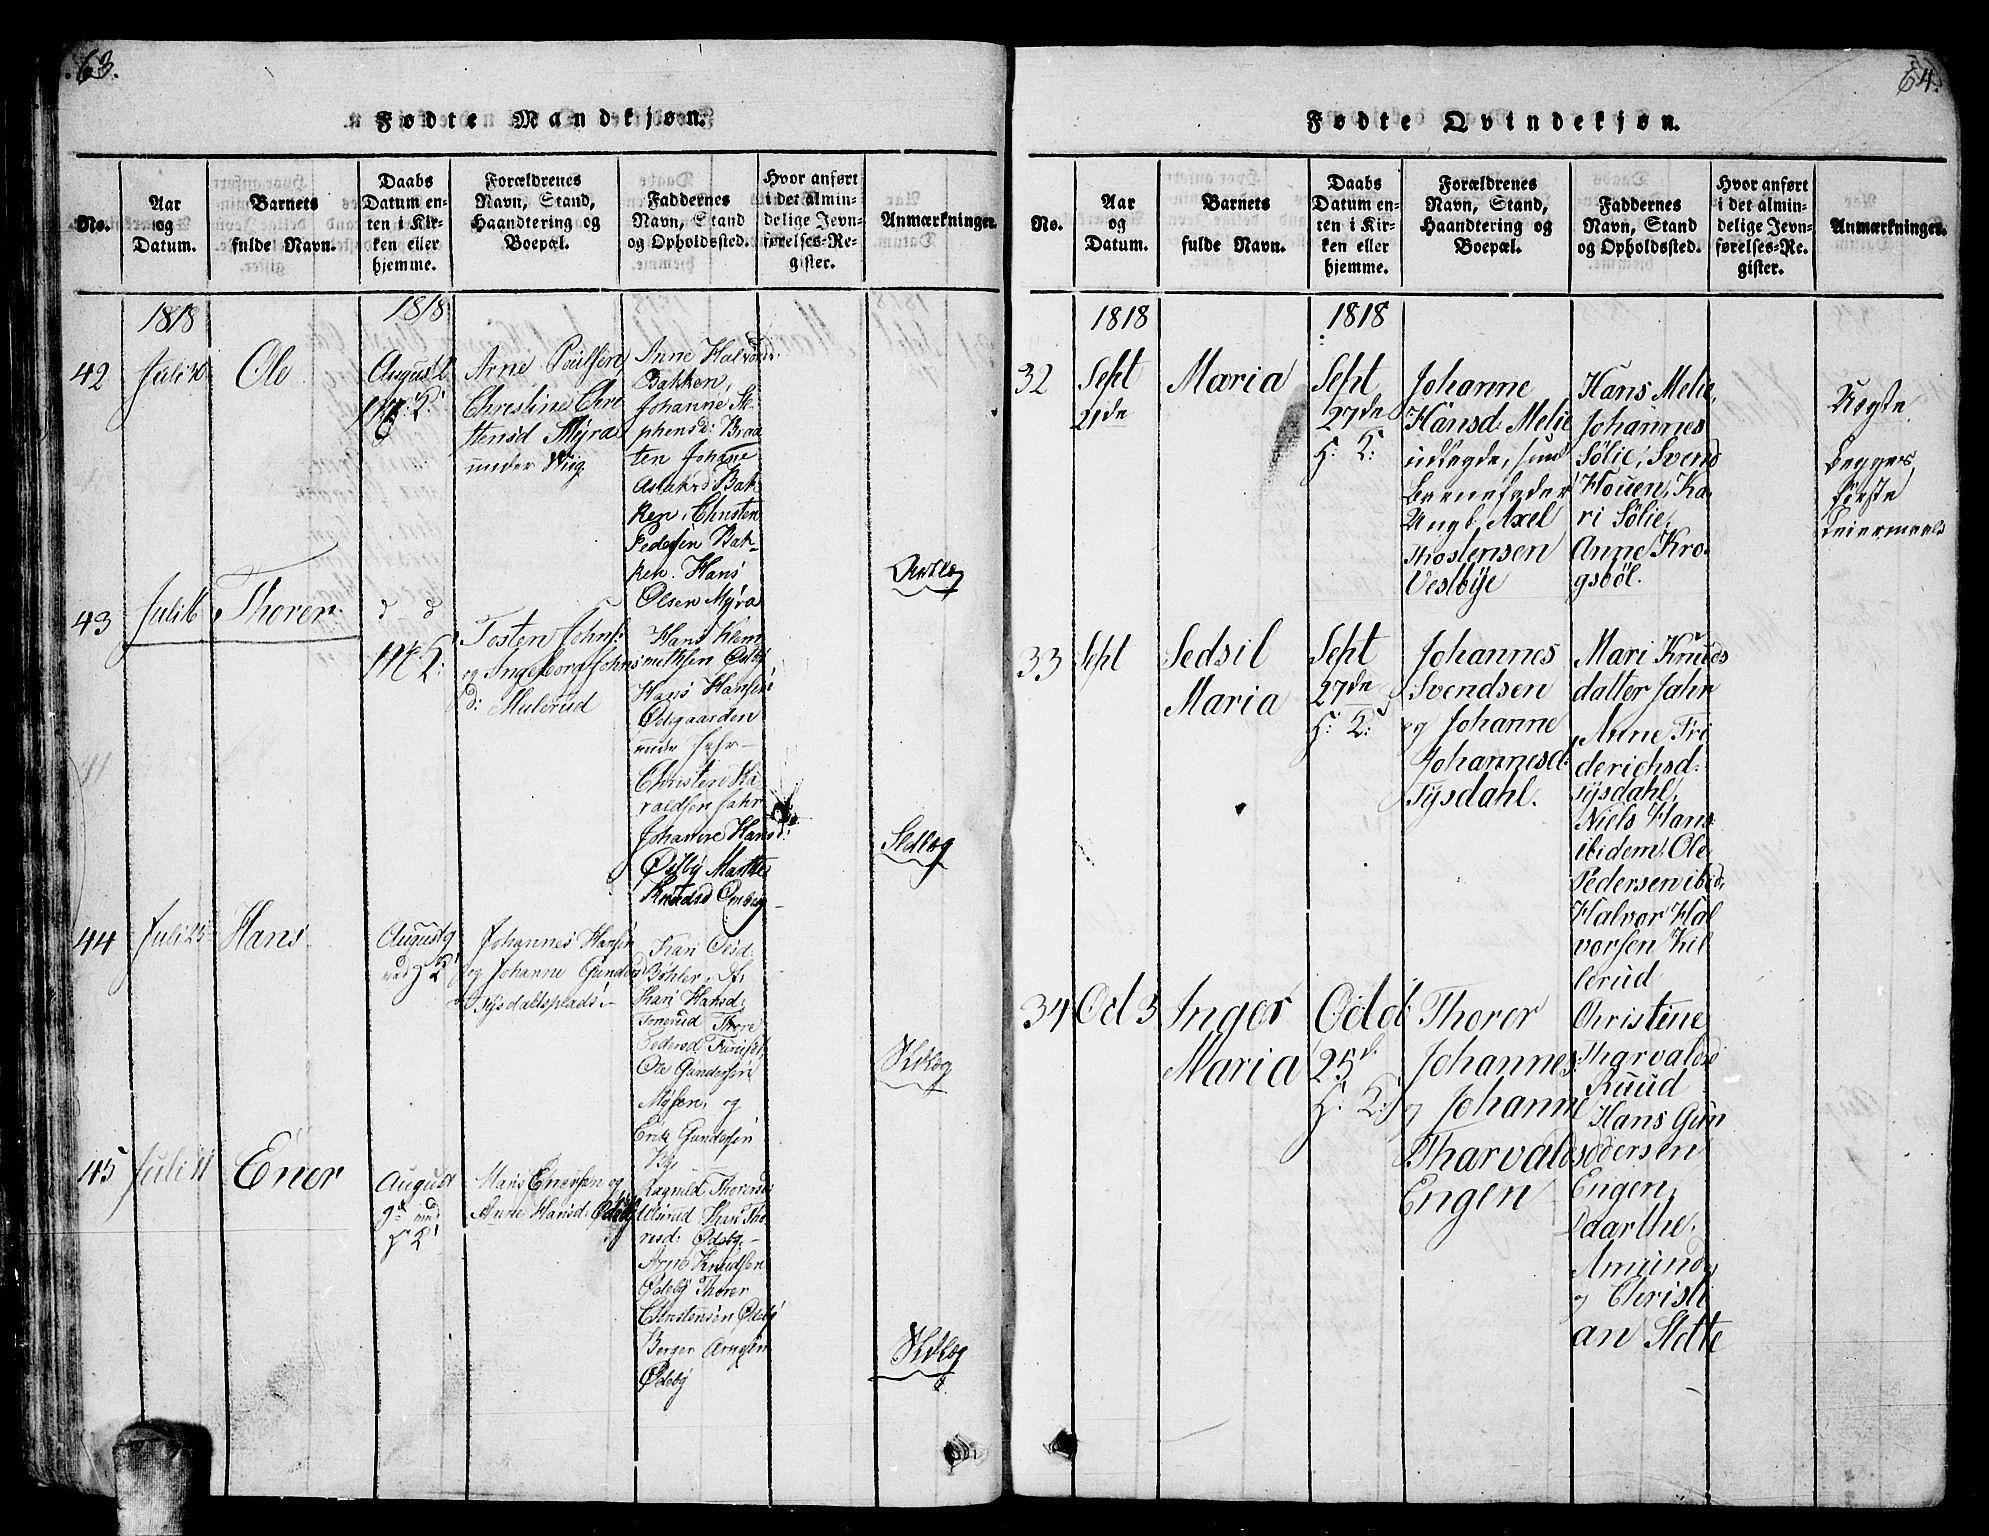 63.
Fødte Mandkjøn.
No.
Aar
og
Datum.
Barnets
fulde Navn.
Daabs
Datum en-
ten i Kir-
ken eller
hjemme.
Forældrenes
Navn, Stand,
Haandtering og
Boepæl.
Faddernes
Navn, Stand
og Opholdssted.
Hvor anført
i det almin-
delige Jevn-
førelses-Re-
gister.
Anmærkninger.
1818
1818
42
Juli
Ole
August 2
M: K:
Arne Poulsen
Christine Chri
stensd Myra
under Wiig
Anne Halvords:
Bakken,
Johanne Ste
phensd: Braa
ten Johane
Bak-
ken, Christen
Pedersen Bak-
ken. Hans
Olsen Myra
43
Juli 6
Thorer
d d
M: K:
Tosten Johns:
og Ingeborg Johns
d: Mulerud
Hans Klem
metsen Ødeby
Hans Hansen
Ødegaarden
under Jahr-
Christen Ha
raldsen Jahr
Johanne Hansd:
Ødeby Marthe
Knudsd Ødeby
44
Juli 25
Hans
August 9
ved H K
Johannes Hansen
og Johanne Gundersd
Tysdalsplads:-
Kari Olsd
Bøhler,
Kari Hansd:
Thore
Pedersd
Ole Gundersen
Mysen, og
Erik Gundersen
45
Juli
Ener
August
9d ved
H K
Hans Enersen og
Anne Hansd: Ødeby
Ragnild Thorersd
Ulsrud Kari Tho
resd: Ødeby-
Arne Knudsen
Ødeby Thorer
Christensen Ødeby
Berger Arnesen
Ødeby
64.
Fødte Qvindekjøn.
No.
Aar
og
Datum.
Barnets
fulde Navn.
Daabs
Datum en-
ten i Kir-
ken eller
hjemme.
Forældrenes
Navn, Stand,
Haandtering og
Boepæl.
Faddernes
Navn, Stand
og Opholdssted.
Hvor anført
i det almin-
delige Jevn-
førelses-Re-
gister.
Anmærkninger.
1818
1818
32
Sept
21de
Maria
Sept
27de
H: K:
Johanne
Hansd: Melie
udlagde, som
Barnefader
Ungk. Axel
Thostensen
Vestbÿe
Hans Melie,
Johannes
Sølie, Svend
Houen, Ka-
ri Sølie,
Anne Kro-
gsbøl.
Uægte
Begges
første
Leiermaal
33
Sept
Sedsil
Maria
Sept
27de
H: K:
Johannes
Svendsen
og Johanne
Johannesd:
Tÿsdahl.
Mari Knuds
datter Jahr
Anne Fri
derichsd:
Tÿsdahl,
Niels Hans
ibidem, Ole
Pedersen ibid,
Halvor Hal
vorsen Kil
lerud
34
Oct 3
Inger
Maria
Octb
25d.
H. K:
Thorer
Johannes:
og Johanne
Tharvalds
Engen
Christine
Tharvaldsd
Ruud
Hans Gun
dersen
Engen,
Daarthe
Amund
og Christi
an Slette